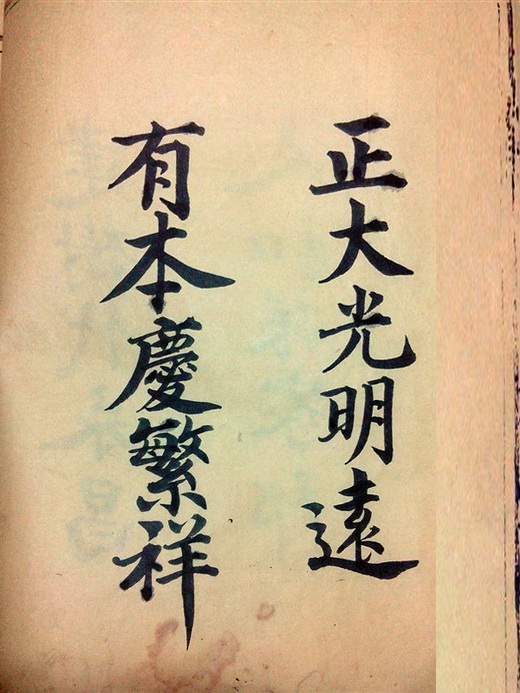 正大光明遠
有本慶繁祥